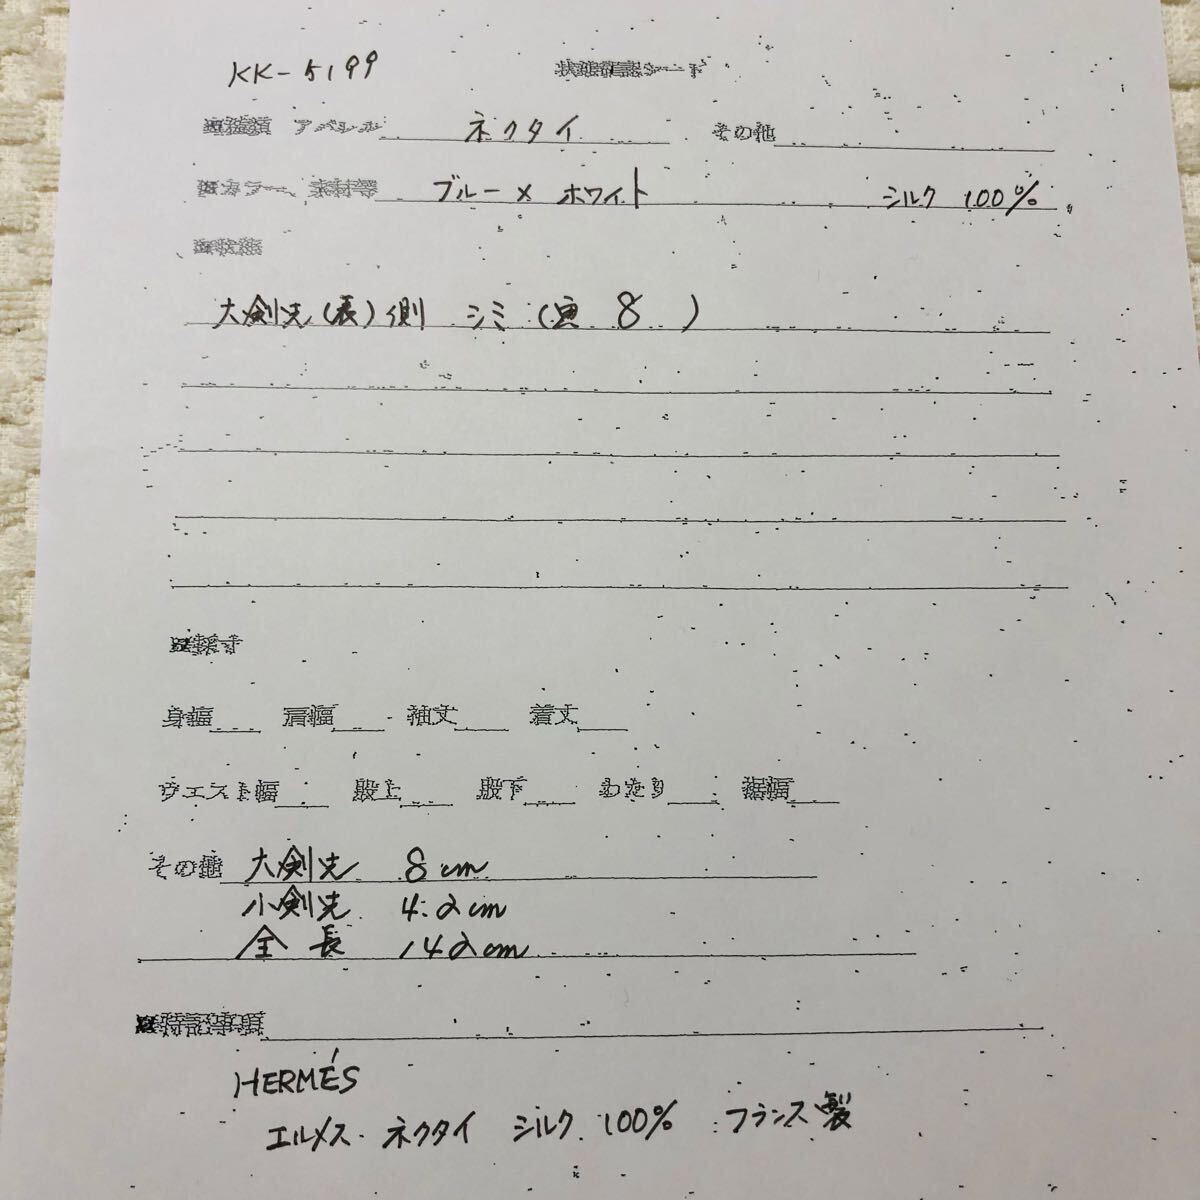 KK-5199 状態確認シート
■種類 アパレル ネクタイ その他
■カラー、素材等 ブルー×ホワイト シルク 100%
■状態
大剣先(表)側 シミ( 8 )
■採寸
身幅 肩幅 袖丈 着丈
ウエスト幅 股上 股下 わたり 裾幅
その他 大剣先 8cm
小剣先 4.2cm
全長 142cm
■特記事項
HERMÉS
エルメス ネクタイ シルク 100% フランス製